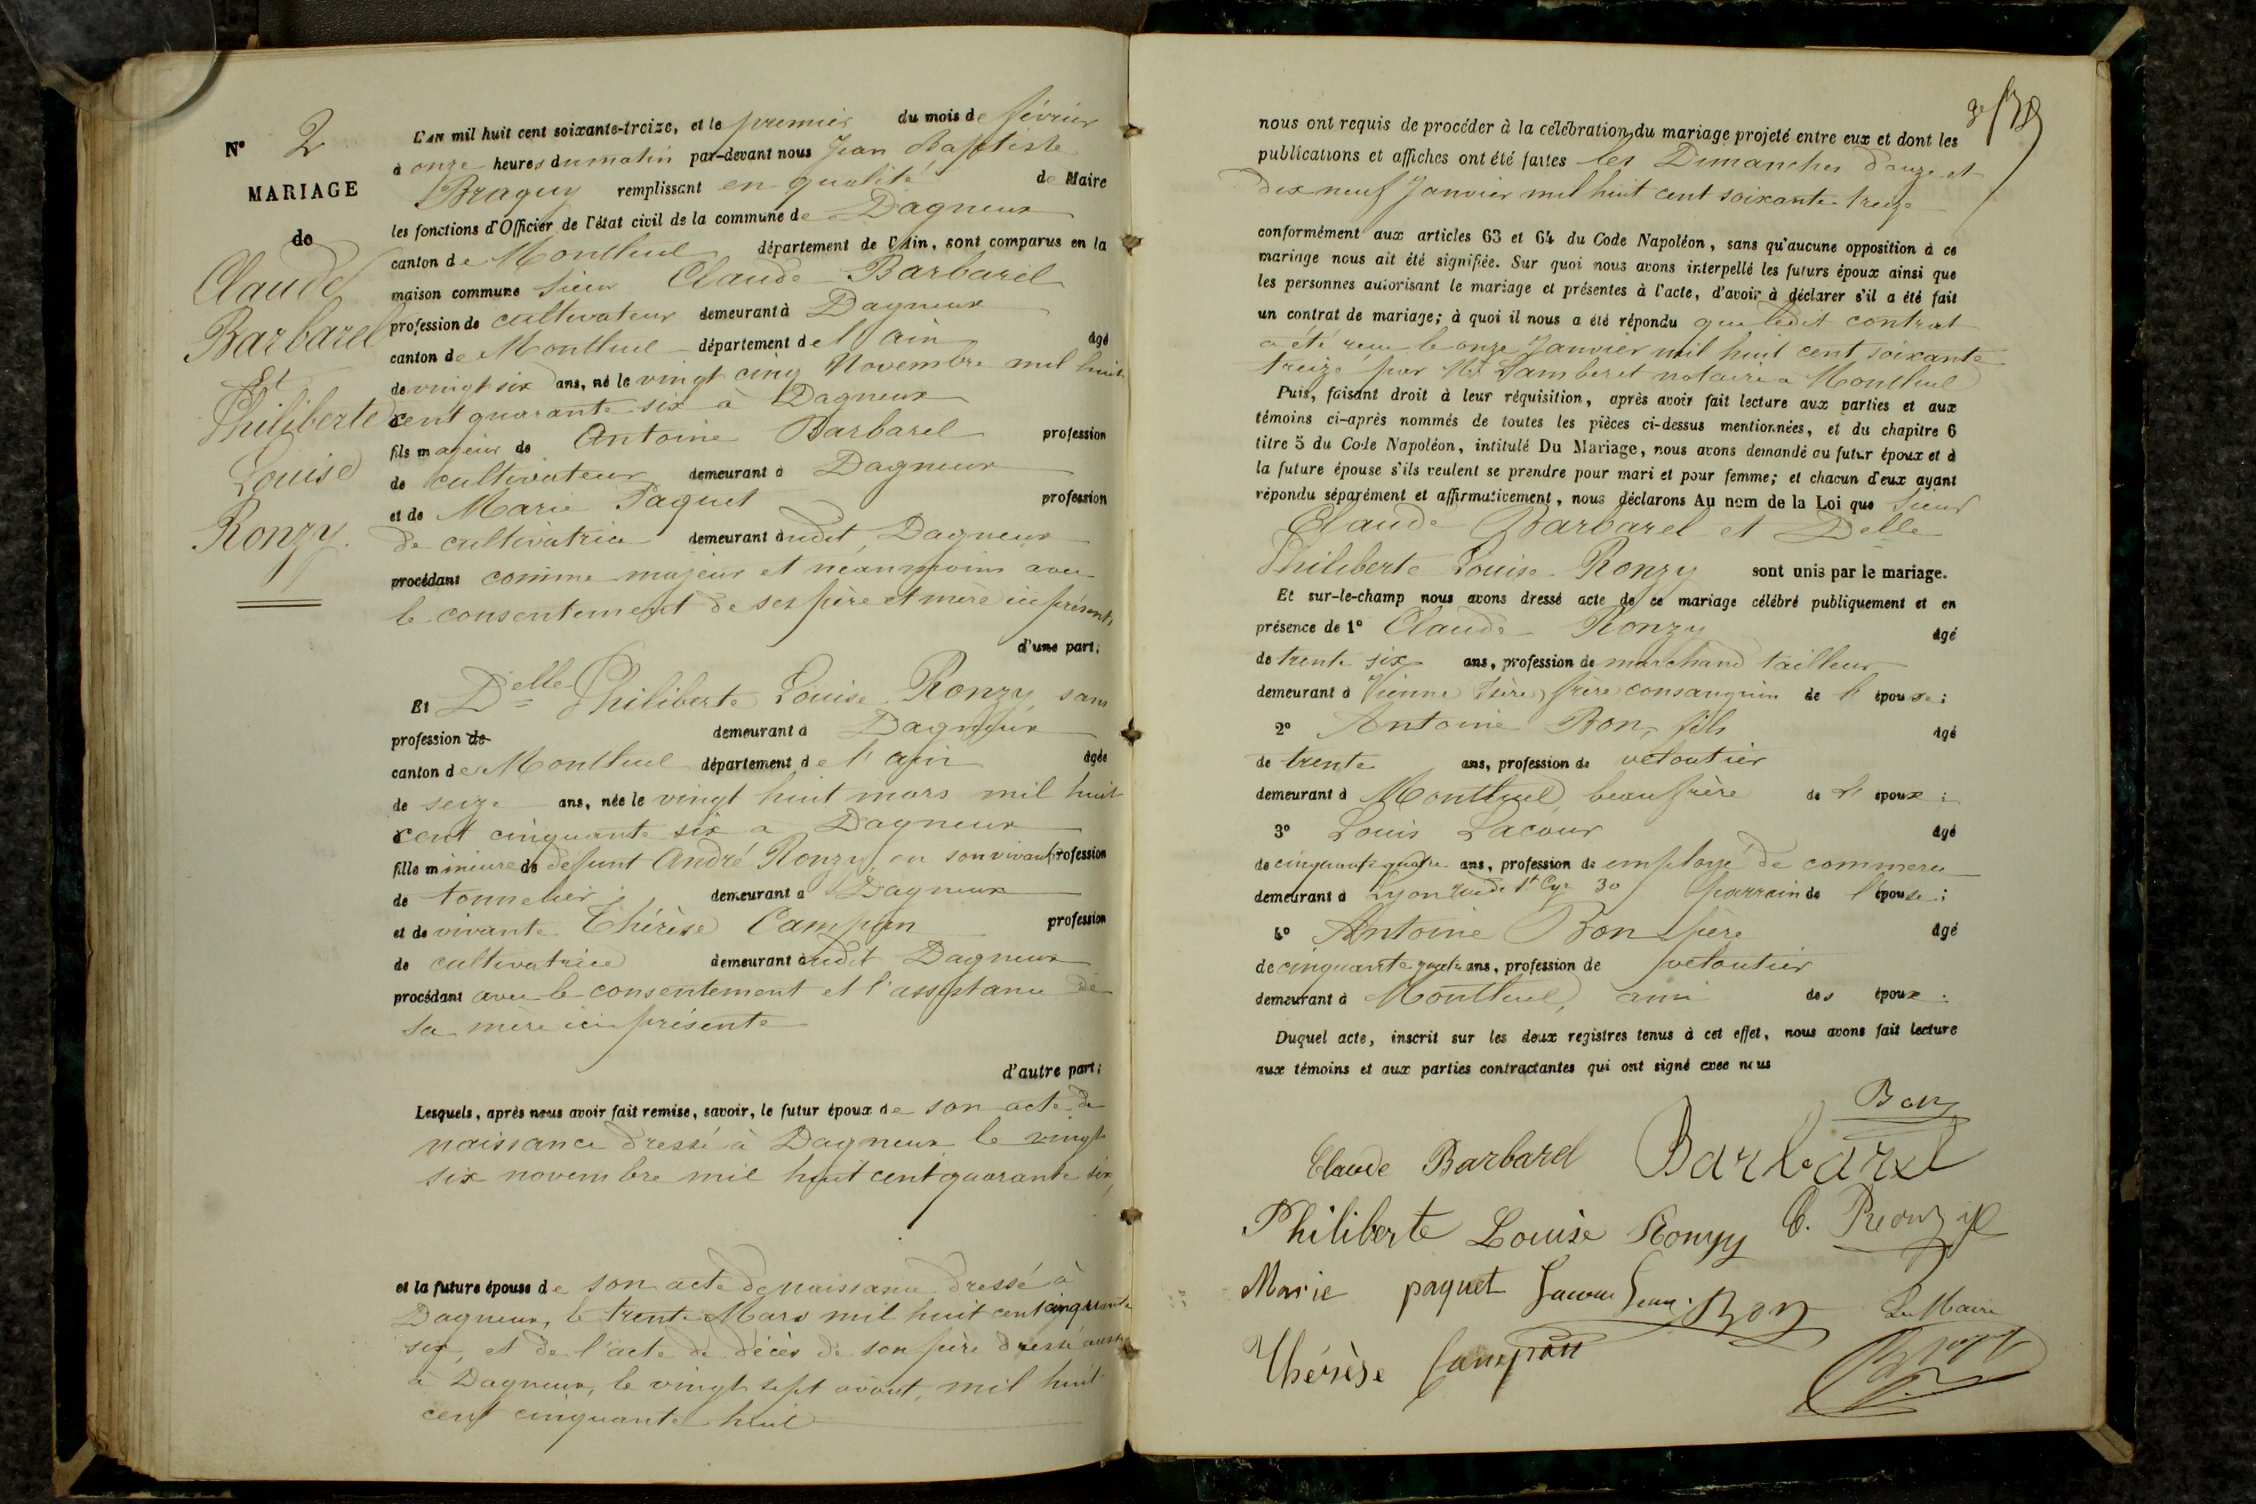 N° 2
MARIAGE
de
Claude
Barbarel
Et
Philiberte
Louise
Ronzy
L'AN mil huit cent soixante-treize, et le premier du mois de février
à onze heures du matin par-devant nous Jean Baptiste
Braguy remplissant en qualité de Maire
les fonctions d'Officier de l'état civil de la commune de Dagneux
canton de Montluel département de l'Ain, sont comparus en la
maison commune Sieur Claude Barbarel
profession de cultivateur demeurant à Dagneux
canton de Montluel département de l'ain âgé
de vingt six ans, né le vingt cinq Novembre mil huit
cent quarante six à Dagneux
fils majeur de Antoine Barbarel profession
de cultivateur demeurant à Dagneux
et de Marie Paquet profession
de cultivatrice demeurant audit Dagneux
procédant comme majeur et néanmoins avec
le consentement de ses père et mère ici présents
d'une part;
Et Delle Philiberte Louise Ronzy sans
profession de demeurant à Dagneux
canton de Montluel département de l'ain âgée
de seize ans, née le vingt huit mars mil huit
cent cinquante six a Dagneux
fille mineure de défunt André Ronzy en son vivant profession
de tonnelier demeurant a Dagneux
et de vivante Thérèse Campan profession
de cultivatrice demeurant audit Dagneux
procédant avec le consentement et l'assistance de
sa mère ici présente
d'autre part;
Lesquels, après nous avoir fait remise, savoir, le futur époux de son acte de
naissance dressé à Dagneux le vingt
six novembre mil huit cent quarante six,
et la future épouse de son acte de naissance dressé à
Dagneux, le trente Mars mil huit cent cinquante
six, et de l'acte de décès de son père dressé aussi
à Dagneux, le vingt sept août, mil huit
cent cinquante huit
nous ont requis de procéder à la célébration du mariage projeté entre eux et dont les
publications et affiches ont été faites les Dimanches douze et
dix neuf Janvier mil huit cent soixante treize
conformément aux articles 63 et 64 du Code Napoléon, sans qu'aucune opposition à ce
mariage nous ait été signifiée. Sur quoi nous avons interpellé les futurs époux ainsi que
les personnes autorisant le mariage et présentes à l'acte, d'avoir à déclarer s'il a été fait
un contrat de mariage; à quoi il nous a été répondu que ledit contrat
a été reçu le onze Janvier mil huit cent soixante
treize par Me Lamberet notaire a Montluel
Puis, faisant droit à leur réquisition, après avoir fait lecture aux parties et aux
témoins ci-après nommés de toutes les pièces ci-dessus mentionnées, et du chapitre 6
titre 5 du Code Napoléon, intitulé Du Mariage, nous avons demandé au futur époux et à
la future épouse s'ils veulent se prendre pour mari et pour femme; et chacun d'eux ayant
répondu séparément et affirmativement, nous déclarons Au nom de la Loi que Sieur
Claude Barbarel et Delle
Philiberte Louise Ronzy sont unis par le mariage.
Et sur-le-champ nous avons dressé acte de ce mariage célébré publiquement et en
présence de 1° Claude Ronzy âgé
de trente six ans, profession de marchand tailleur
demeurant à Vienne Isère, frère consanguin de l'épouse;
2° Antoine Bon, fils âgé
de trente ans, profession de veloutier
demeurant à Montluel, beaufrère de l'époux;
3° Louis Lacour âgé
de cinquante quatre ans, profession de employé de commerce
demeurant à Lyon rue de St Cyr 30 parrain de l'épouse;
4° Antoine Bon père âgé
de cinquante quatre ans, profession de veloutier
demeurant à Montluel, ami des époux.
Duquel acte, inscrit sur les deux registres tenus à cet effet, nous avons fait lecture
aux témoins et aux parties contractantes qui ont signé avec nous
Bon
Claude Barbarel Barbarel
Philiberte Louise Ronzy C. Ronzy
Marie paquet Lacour Bon Le Maire
Thérèse Campan